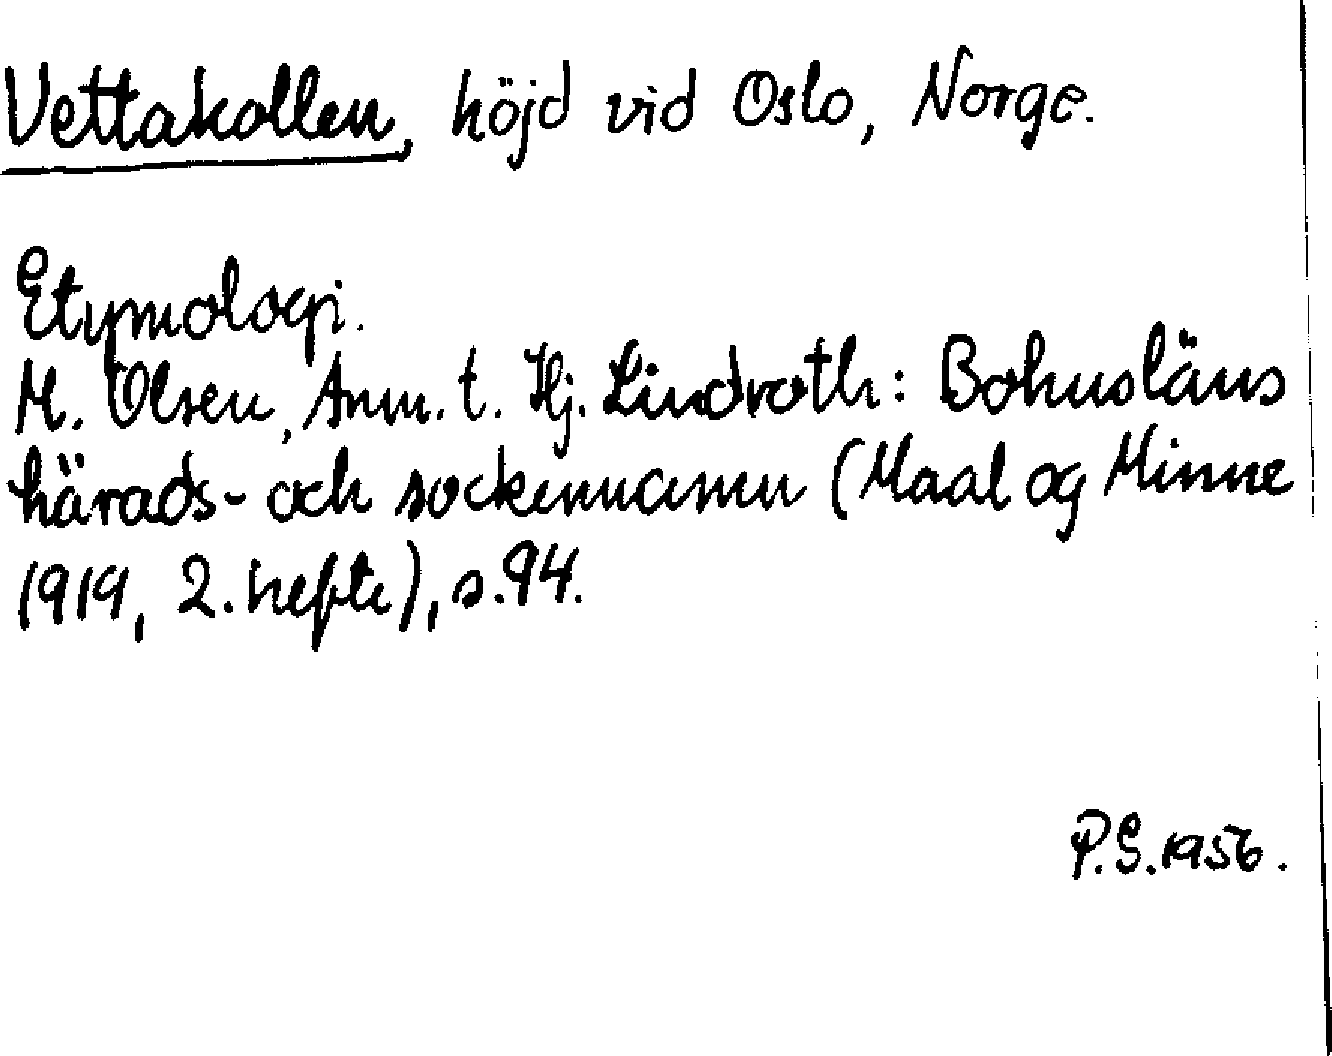 Vettakollen, höjd vid Oslo, Norge.
Etymologi.
M. Olsen, Anm. t. Hj. Lindroth: Bohusläns
härads- och sockennamn (Maal og Minne
1919, 2. hefte), s. 94.
P.S. 1956.